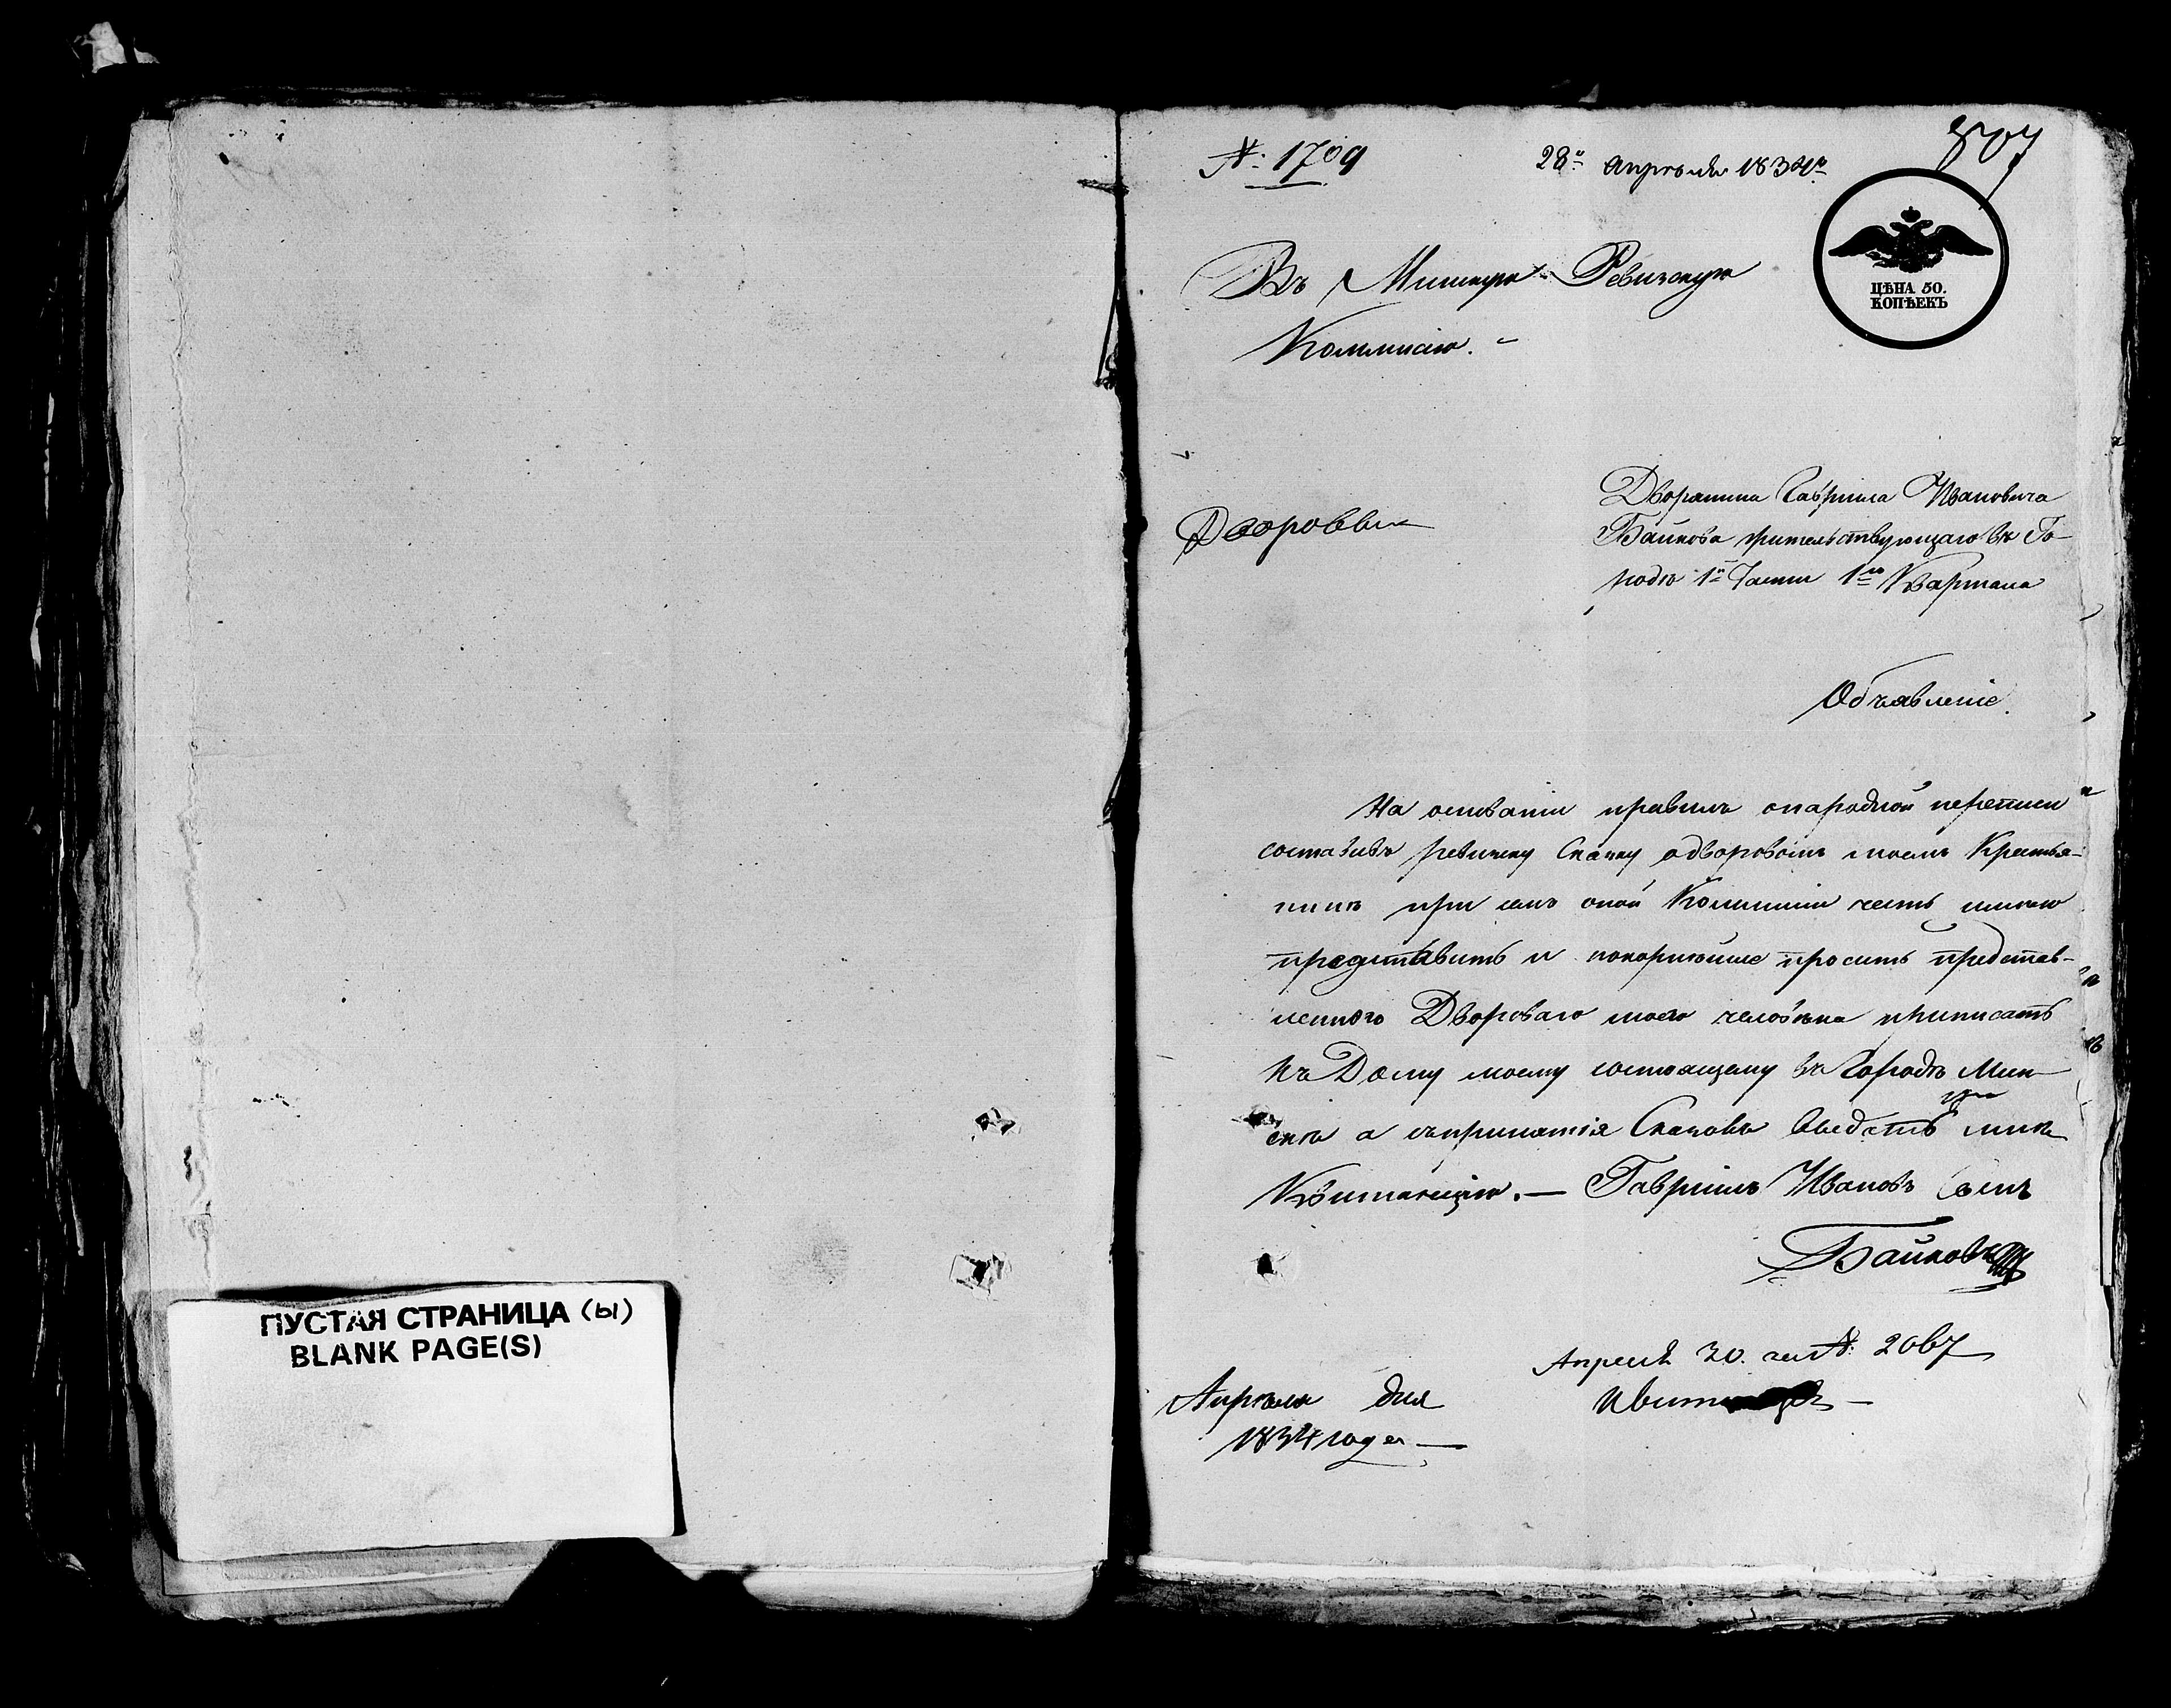 ПУСТАЯ СТРАНИЦА (ы)
BLANK PAGE(S)
№ 1709
28го Апрѣля 1834го
807
ЦѢНА 50.
КОПѢЕКЪ
Въ Минскую Ревизскую
Коммисію.
Дворовые
Дворянина Гавріила Ивановича
Байкова жительствующаго въ Го-
родѣ 1й Части 1го Квартала
Объявленіе.
На основаніи правилъ онародной переписи
составивъ ревизску Сказку одворовомъ моемъ Крестья-
нинѣ при семъ оной Коммисіи честь имѣю
представить и покорнѣйше просить представ-
леннаго Двороваго моего человѣка приписать
къ Дому моему состоящему въ Городѣ Мин-
скѣ а въпринятіи Сказокъ выдать мнѣ
Квитанцію. — Гавріилъ Ивановъ Сынъ
Байковъ
Апреля 30. №. 2067
Апрѣля дня
1834 года —